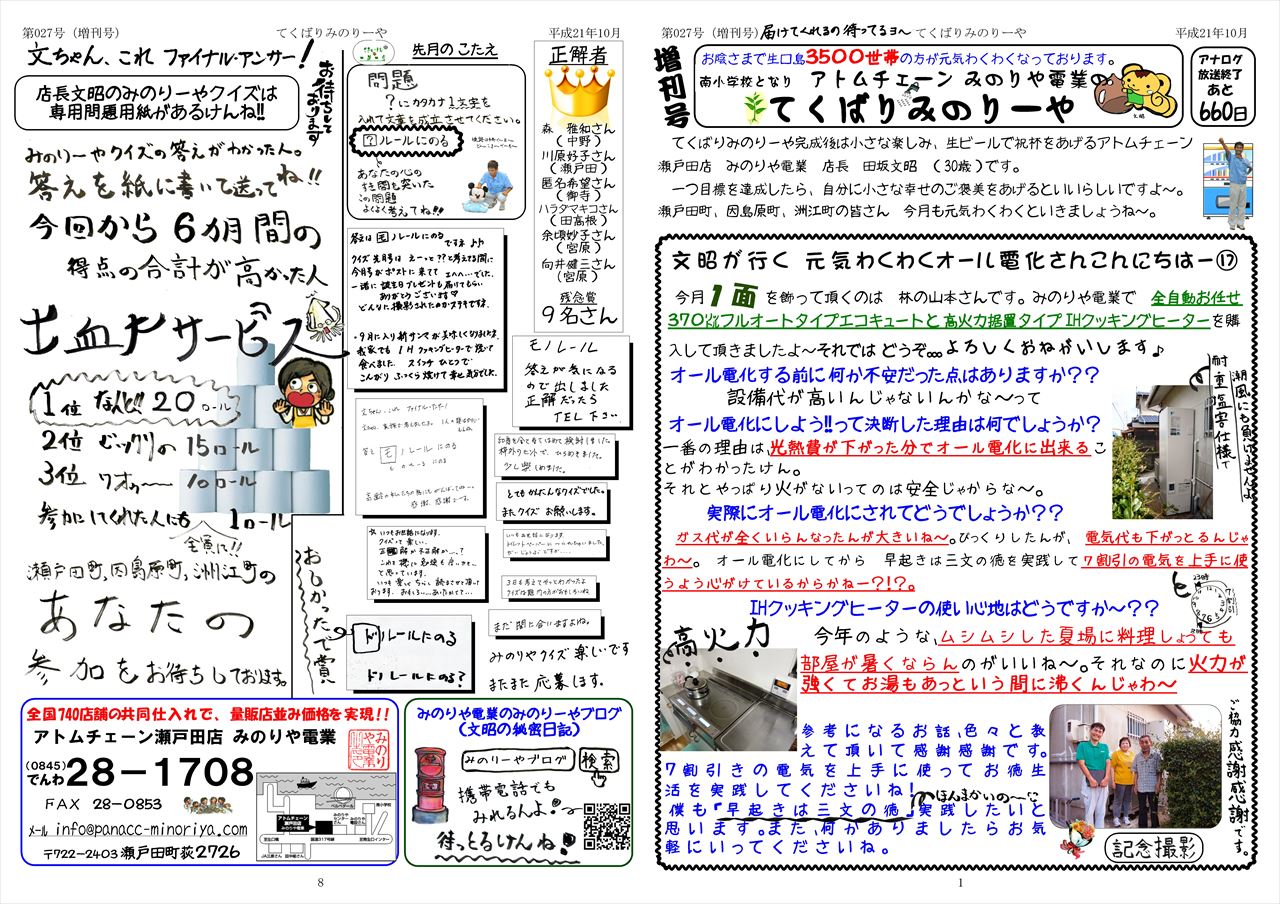 第027号（増刊号）
てくばりみのりーや
平成21年10月
文ちゃん、これ ファイナル・アンサー!
お待ちして
おります
店長文昭のみのりーやクイズは
専用問題用紙があるけんね!!
みのりーやクイズの答えがわかった人。
答えを紙に書いて送ってね!!
今回から6カ月間の
得点の合計が高かった人
出血大サービス
1位 なんと!! 20ロール
2位 むっくりの 15ロール
3位 ワオゥ〜 10ロール
参加してくれた人にも 1ロール
全員に!!
瀬戸田町,因島原町,洲江町の
あなたの
参加をお待ちしております。
先月のこたえ
問題
?にカタカナ1文字を
入れて文章を成立させてください。
?ルールにのる
あなたの心の
すき間を突いた
この問題
よくよく考えてね!!!
答えは モノレールにのる
ですネ♪♪
クイズ先月号 えーっと??と考えてる間に
今月号がポストに来てて エヘヘ…でした。
一緒に 誕生日プレゼントも届けてもらい
ありがとうございます♡
どんなに撮影されたのかステキです。
・9月に入り新サンマが美味しくなりました。
我家でも IHクッキングヒーターで焼いて
食べました。 スイッチひとつで
こんがり ふっくら焼けて幸せ気分でした。
正解者
森 雅和さん
（中野）
川原好子さん
（瀬戸田）
匿名希望さん
（御寺）
ハラダマキコさん
（田高根）
余頃妙子さん
（宮原）
向井健三さん
（宮原）
残念賞
9名さん
モノレール
答えが気になる
ので出しました
正解だったら
TEL下さい
とてもかんたんなクイズでした。
またクイズ お願いします。
おしかったで賞
ドルールにのる
ドルールにのる?
まだ間に合いますよね。
みのりやクイズ楽しいです
またまた応募します。
全国740店舗の共同仕入れで、量販店並み価格を実現!!
アトムチェーン瀬戸田店 みのりや電業
(0845)
でんわ28－1708
FAX 28-0853
メール info@panacc-minoriya.com
〒722-2403 瀬戸田町荻2726
みのりや電業のみのりーやブログ
（文昭の秘密日記）
みのりーやブログ 検索
携帯電話でも
みれるんよ!
待っとるけんね!
8
第027号（増刊号）
届けてくれるの待ってるヨ〜
てくばりみのりーや
平成21年10月
増刊号
お陰さまで生口島3500世帯の方が元気わくわくなっております。
南小学校となり アトムチェーン みのりや電業の
てくばりみのりーや
アナログ
放送終了
あと
660日
てくばりみのりーや完成後は小さな楽しみ、生ビールで祝杯をあげるアトムチェーン
瀬戸田店 みのりや電業 店長 田坂文昭 （30歳）です。
一つ目標を達成したら、自分に小さな幸せのご褒美をあげるといいらしいですよ〜。
瀬戸田町、因島原町、洲江町の皆さん 今月も元気わくわくといきましょうね〜。
文昭が行く 元気わくわくオール電化さんこんにちはー⑰
今月1面を飾って頂くのは 林の山本さんです。みのりや電業で 全自動お任せ
370㍑フルオートタイプエコキュートと高火力据置タイプIHクッキングヒーターを購
入して頂きましたよ〜それでは どうぞ。。。よろしくおねがいします♪
オール電化する前に何か不安だった点はありますか??
設備代が高いんじゃないんかな〜って
オール電化にしよう!!って決断した理由は何でしょうか?
一番の理由は、光熱費が下がった分でオール電化に出来るこ
とがわかったけん。
それとやっぱり火がないってのは安全じゃからな〜。
潮風にも負けませんよ
耐重塩害仕様で
実際にオール電化にされてどうでしょうか??
ガス代が全くいらんなったんが大きいね〜。びっくりしたんが、電気代も下がっとるんじゃ
わ〜。 オール電化にしてから 早起きは三文の徳を実践して7割引の電気を上手に使
うよう心がけているからかね〜?!?。
IHクッキングヒーターの使い心地はどうですか〜??
23時
7時
7割引
高火力
今年のような、ムシムシした夏場に料理しょっても
部屋が暑くならんのがいいね〜。それなのに火力が
強くてお湯もあっという間に沸くんじゃわ〜
参考になるお話、色々と教
えて頂いて感謝感謝です。
7割引きの電気を上手に使ってお徳生
活を実践してくださいね!
ほんまかいの〜
僕も『早起きは三文の徳』実践したいと
思います。また、何かありましたらお気
軽にいってくださいね。
記念撮影
ご協力感謝感謝です。
1